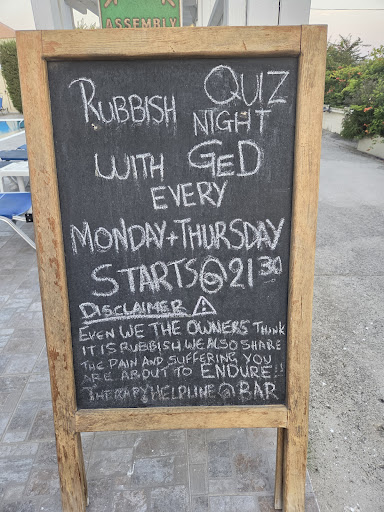 ASSEMBLY
RUBBISH QUIZ
NIGHT
WITH GED
EVERY
MONDAY+THURSDAY
STARTS@21 30
DISCLAIMER ⚠
EVEN WE THE OWNERS THINK
IT IS RUBBISH WE ALSO SHARE
THE PAIN AND SUFFERING YOU
ARE ABOUT TO ENDURE!!
THERAPY HELPLINE @ BAR